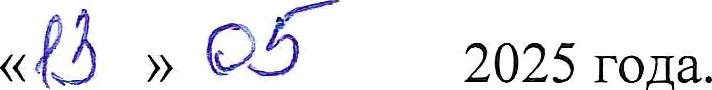 «13» 05 2025 года.